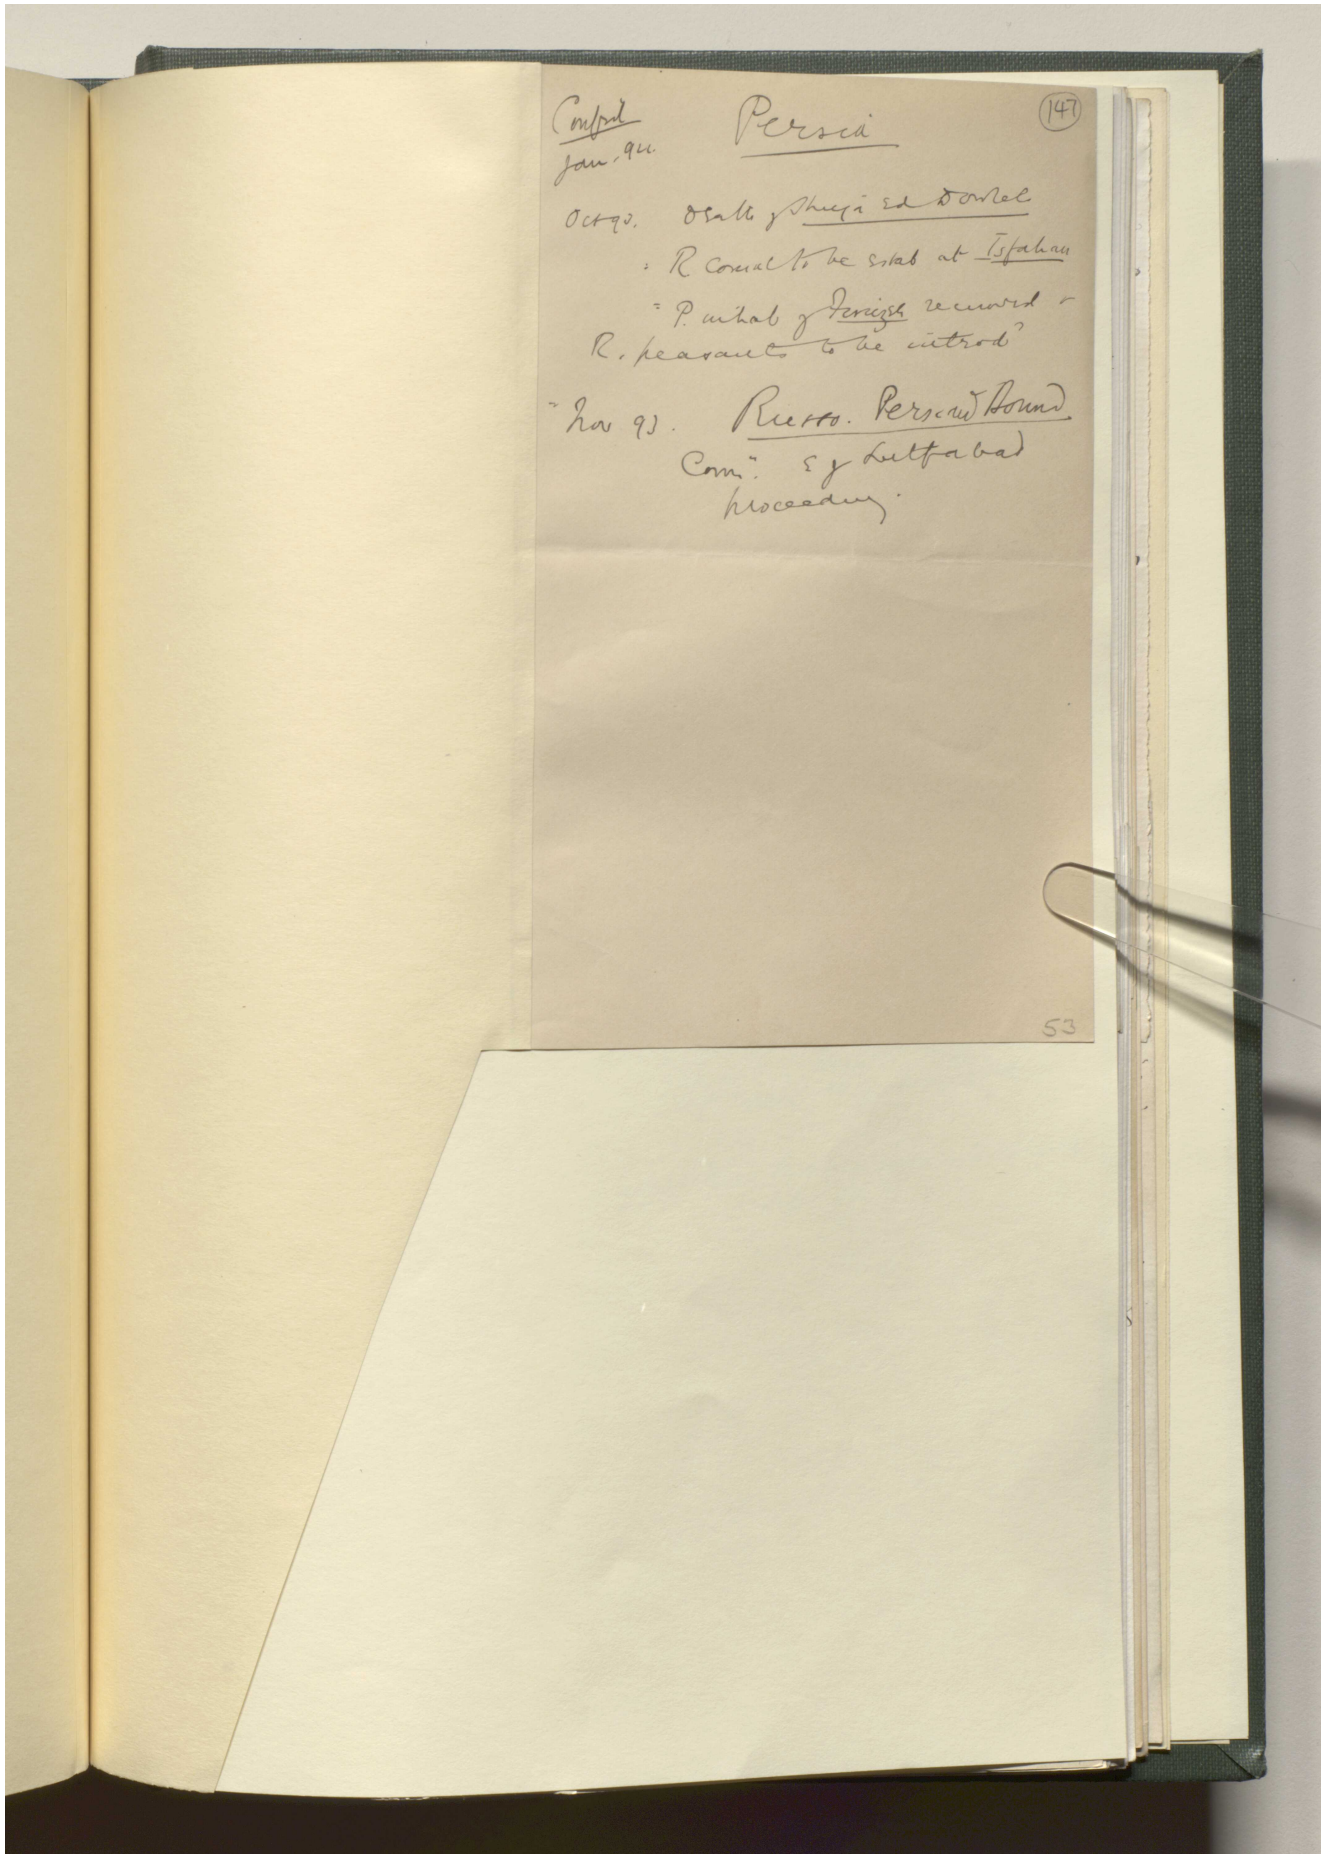 Confid
Persia
147
Jan. 94.
Oct 93. Death of Shuja Ed Dowleh
" R consul to be estab at Isfahan
" P. inhab of Firuzeh removed &
R. peasants to be introd
" Nov 93. Russo. Persian Bound
Comn. E of Lutfabad
proceeding.
53